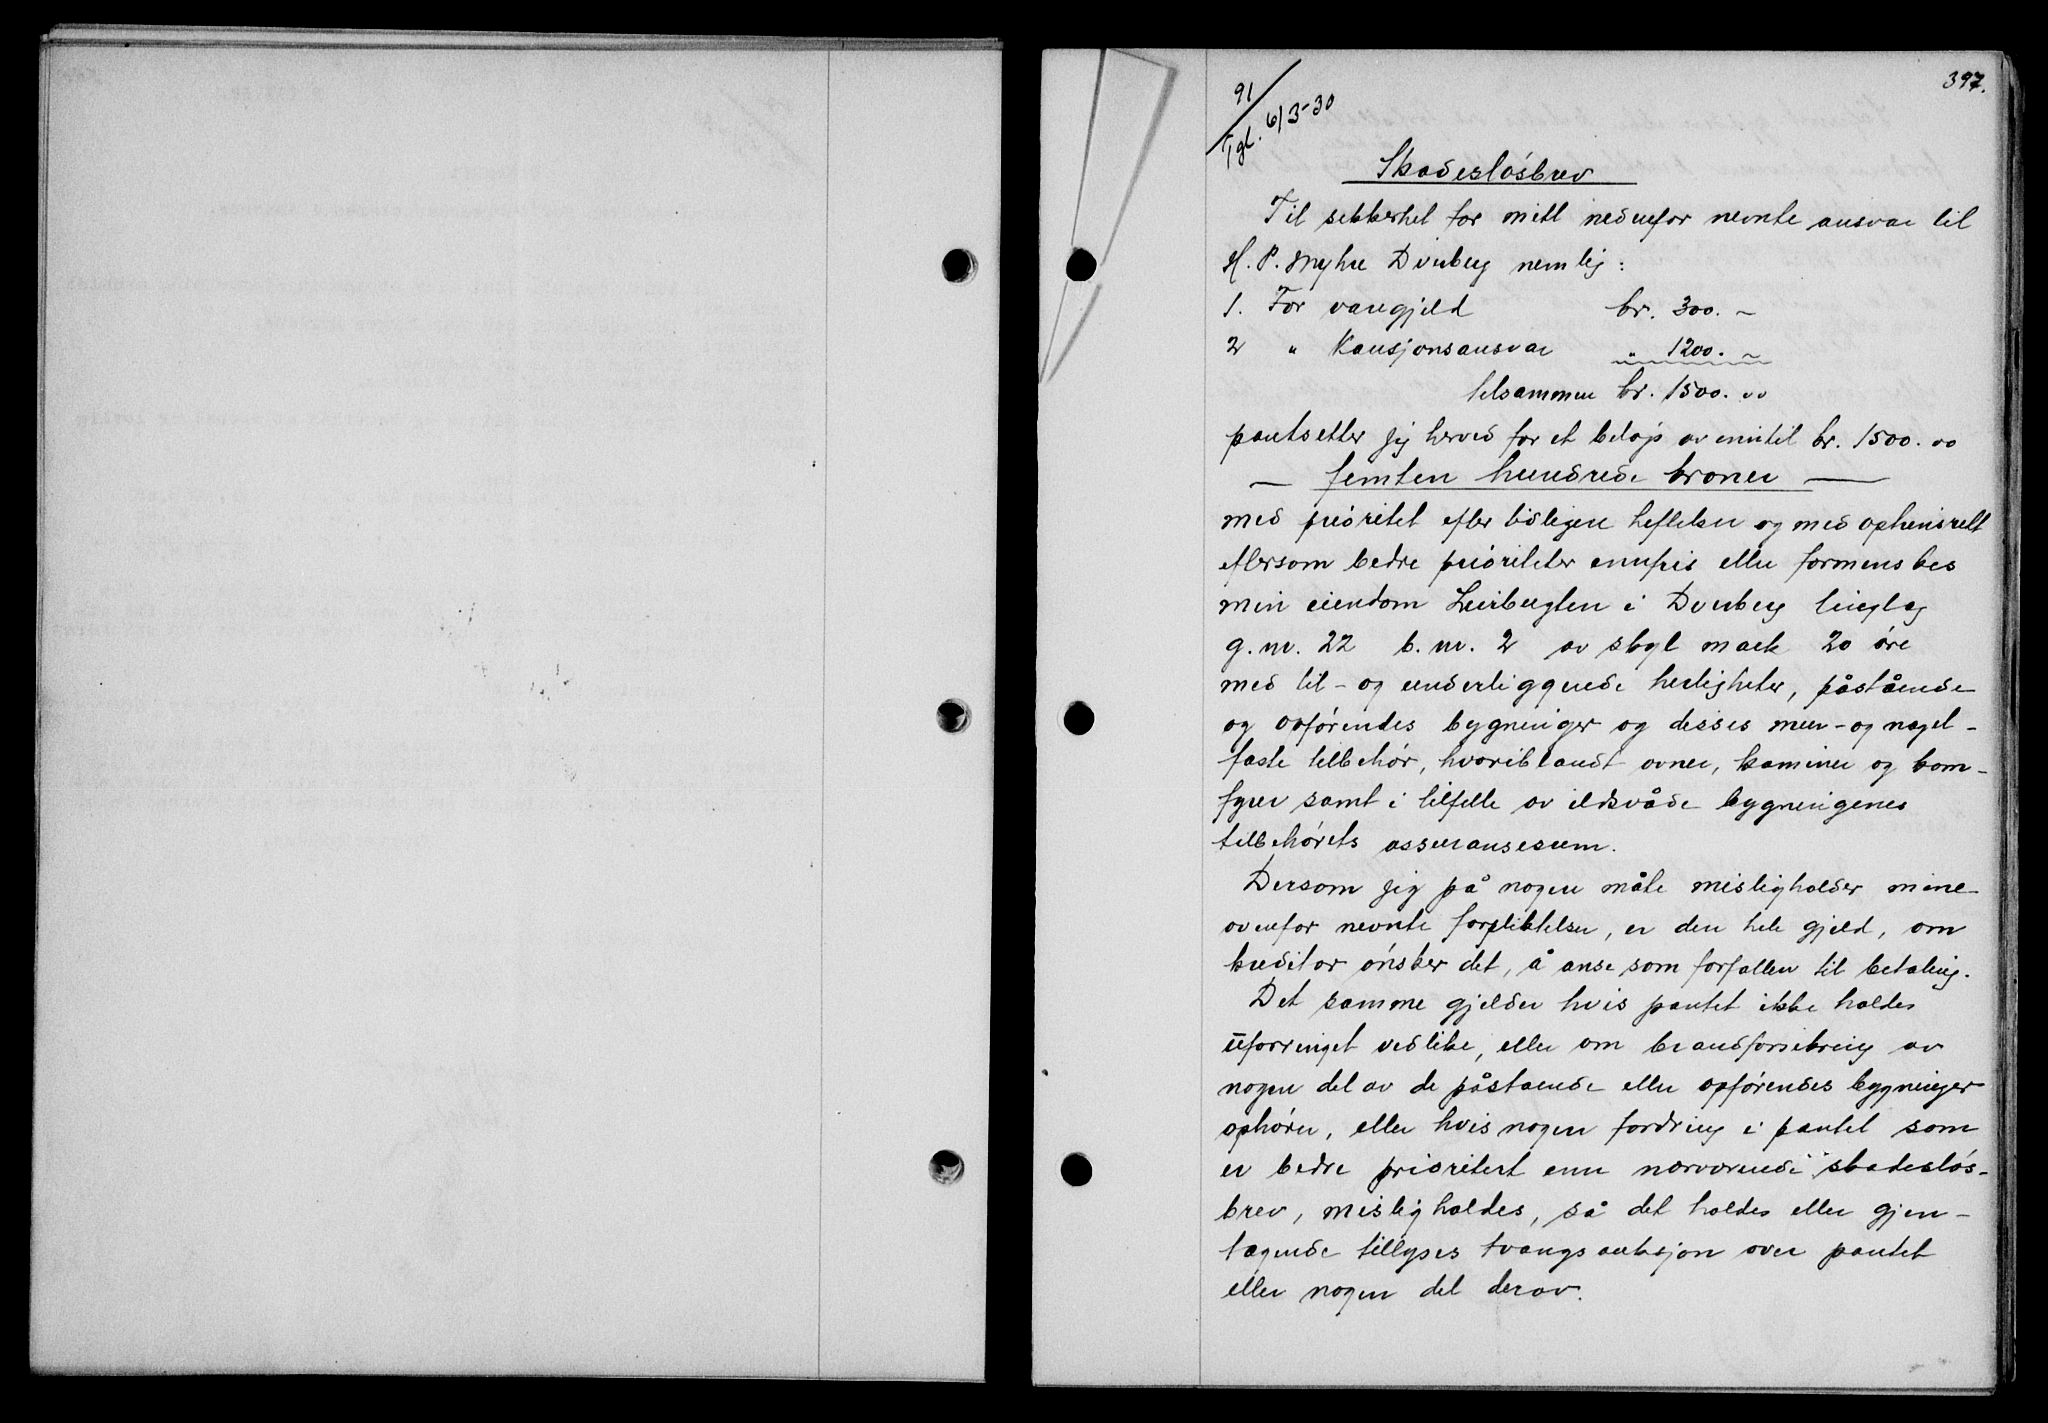 397.
91/
Tgl. 6/3-30
Skadesløsbrev
Til sikkerhet for mitt nedenfor nevnte ansvar til
H. P. Myhre Dverberg nemlig:
1. For varegjeld kr. 300. -
2 " Kausjonsansvar " 1200. -
tilsammen kr. 1500. 00
pantsetter jeg herved for et beløp av inntil kr. 1500. 00
— femten hundrede kroner —
med prioritet efter tidligere heftelser og med opheisrett
eftersom bedre prioriteter innfris eller forminskes
min eiendom i Dverberg tinglag
g. nr. 22 b. nr. 2 av skyld mark 20 øre
med til- og underliggende herligheter, påstående
og opførendes bygninger og disses mur- og nagel-
faste tilbehør, hvoriblandt ovner, kaminer og kom-
fyrer samt i tilfelle av ildsvåde bygningenes
tilbehørets assuransesum.
Dersom jeg på nogen måte misligholder mine
ovenfor nevnte forpliktelser, er den hele gjeld, om
kreditor ønsker det, å anse som forfallen til betaling.
Det samme gjelder hvis pantet ikke holdes
uforringet vedlike, eller om brandforsikring av
nogen del av de påstaende eller opførendes bygninger
ophører, eller hvis nogen fordring i pantet som
er bedre prioritert enn nærværende skadesløs-
brev, misligholdes, så det holdes eller gjen-
tagende tillyses tvangsauksjon over pantet
eller nogen del derav.